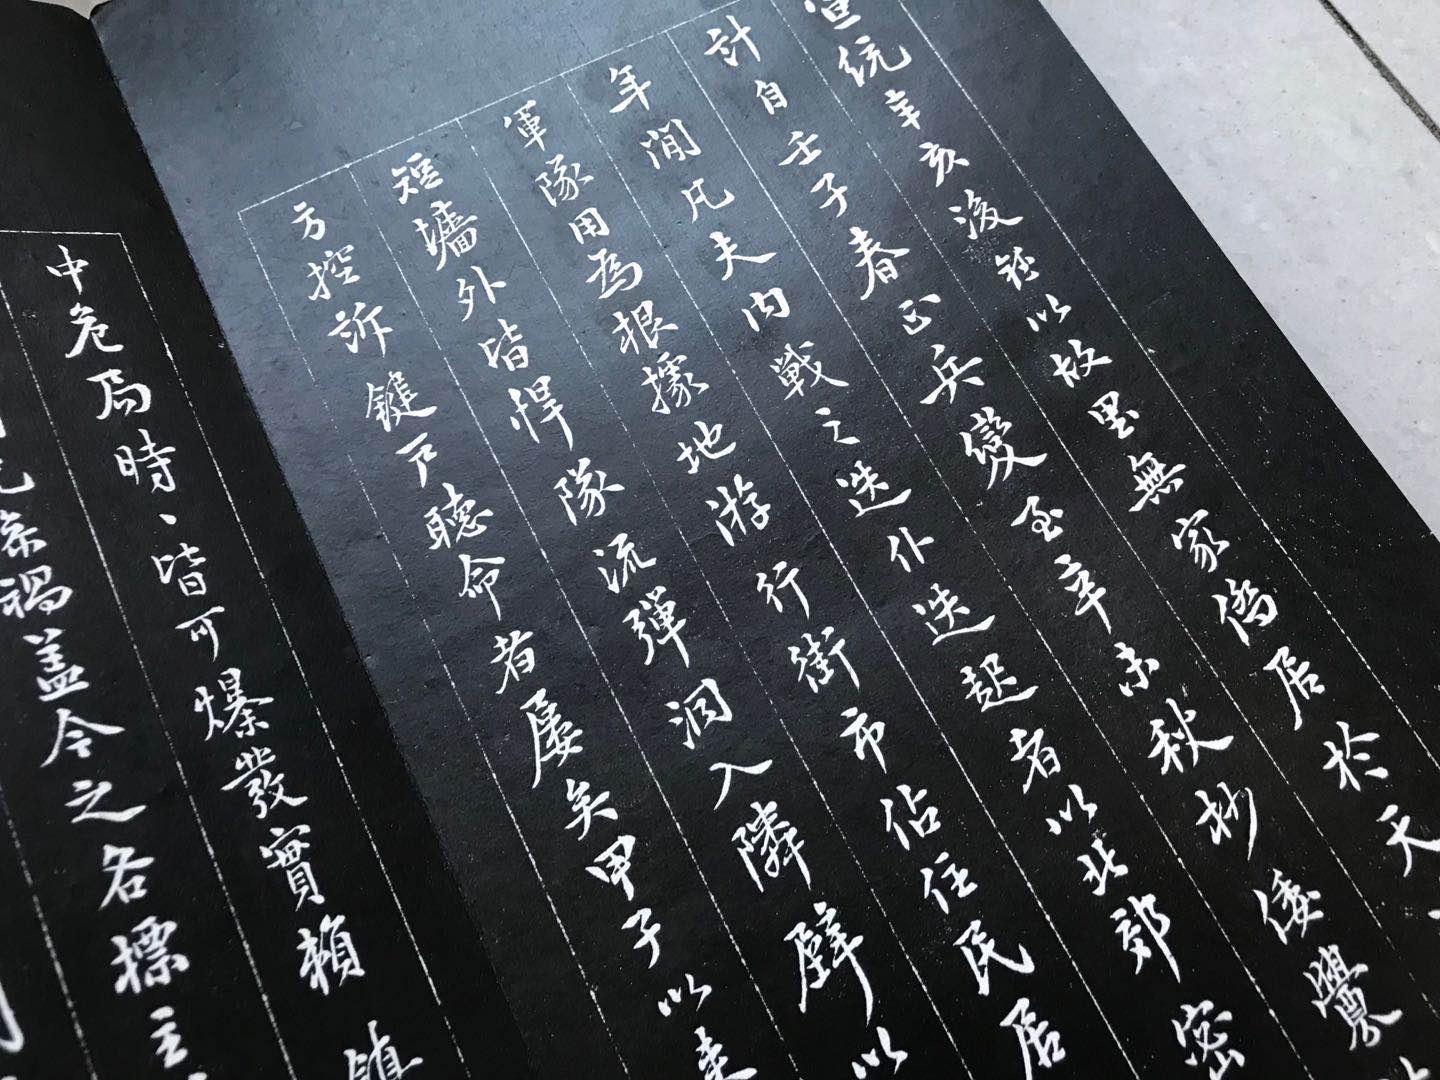 宣統辛亥後鈺以故里無家僑居於天
計自壬子春正兵變至辛未秋杪倭釁
年間凡夫內戰之迭仆迭起者以北郊密
軍隊用為根據地游行街市佔住民居
短墻外皆悍隊流彈洞入隣壁以
方控訴鍵戶聽命者屢矣甲子以來
中危焉時、皆可爆發實賴 鎮
禍蓋今之各標主